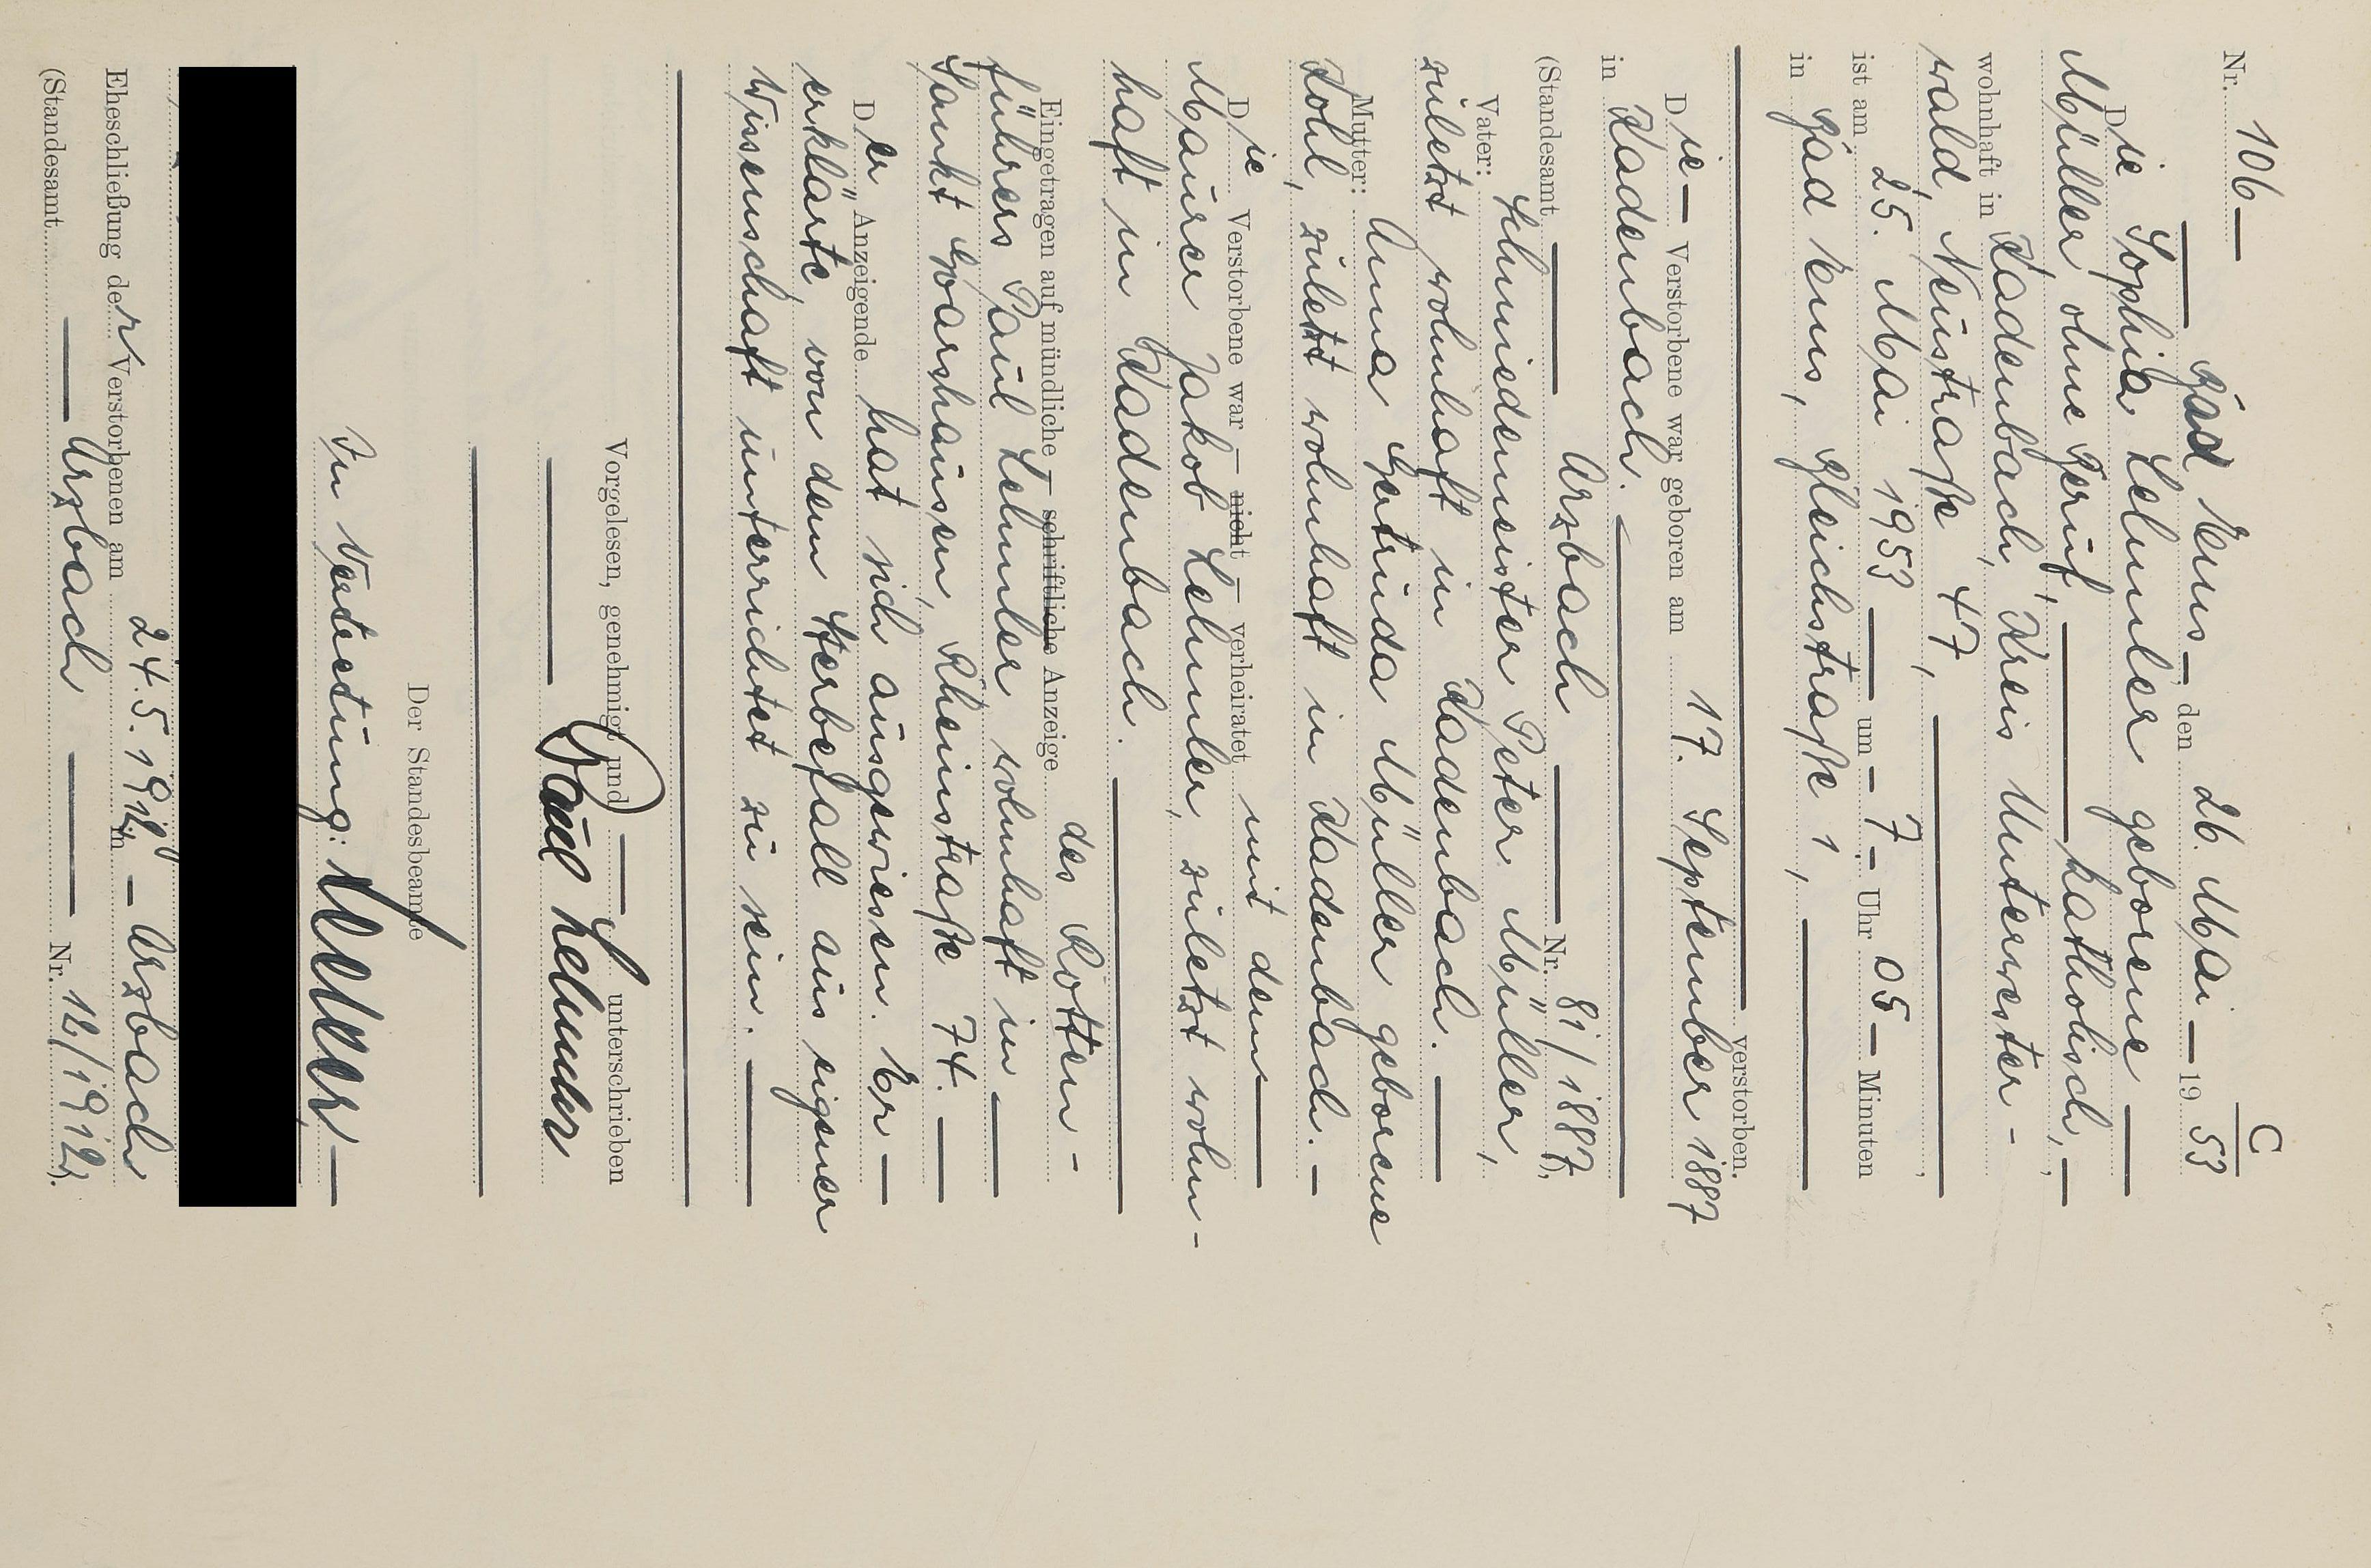 C
Nr. 106 —
Bad Ems — den 26. Mai — 19 53
Die Sophia Lehmler geborene —
Müller ohne Beruf, — katholisch, —
wohnhaft in Kadenbach, Kreis Unterwester-
wald, Neustraße 47, —
ist am 25. Mai 1953 — um — 7 — Uhr 05 — Minuten
in Bad Ems, Bleichstraße 1, —
verstorben.
Die — Verstorbene war geboren am 17. September 1887
in Kadenbach. —
(Standesamt — Arzbach — Nr. 81/1887),
Vater: Schmiedemeister Peter Müller,
zuletzt wohnhaft in Kadenbach. —
Mutter: Anna Gertruda Müller geborene
Kohl, zuletzt wohnhaft in Kadenbach. —
Die Verstorbene war — nicht — verheiratet mit dem —
Maurer Jakob Lehmler, zuletzt wohn-
haft in Kadenbach. —
Eingetragen auf mündliche — schriftliche Anzeige des Rotten-
führers Paul Lehmler wohnhaft in —
Sankt Goarshausen, Rheinstraße 74. —
Der Anzeigende hat sich ausgewiesen. Er —
erklärte, von dem Sterbefall aus eigener
Wissenschaft unterrichtet zu sein. —
Vorgelesen, genehmigt und — unterschrieben
— Paul Lehmler
Der Standesbeamte
In Vertretung:
Eheschließung der Verstorbenen am 24.5.1912 in — Arzbach
(Standesamt — Arzbach — Nr. 12/1912).